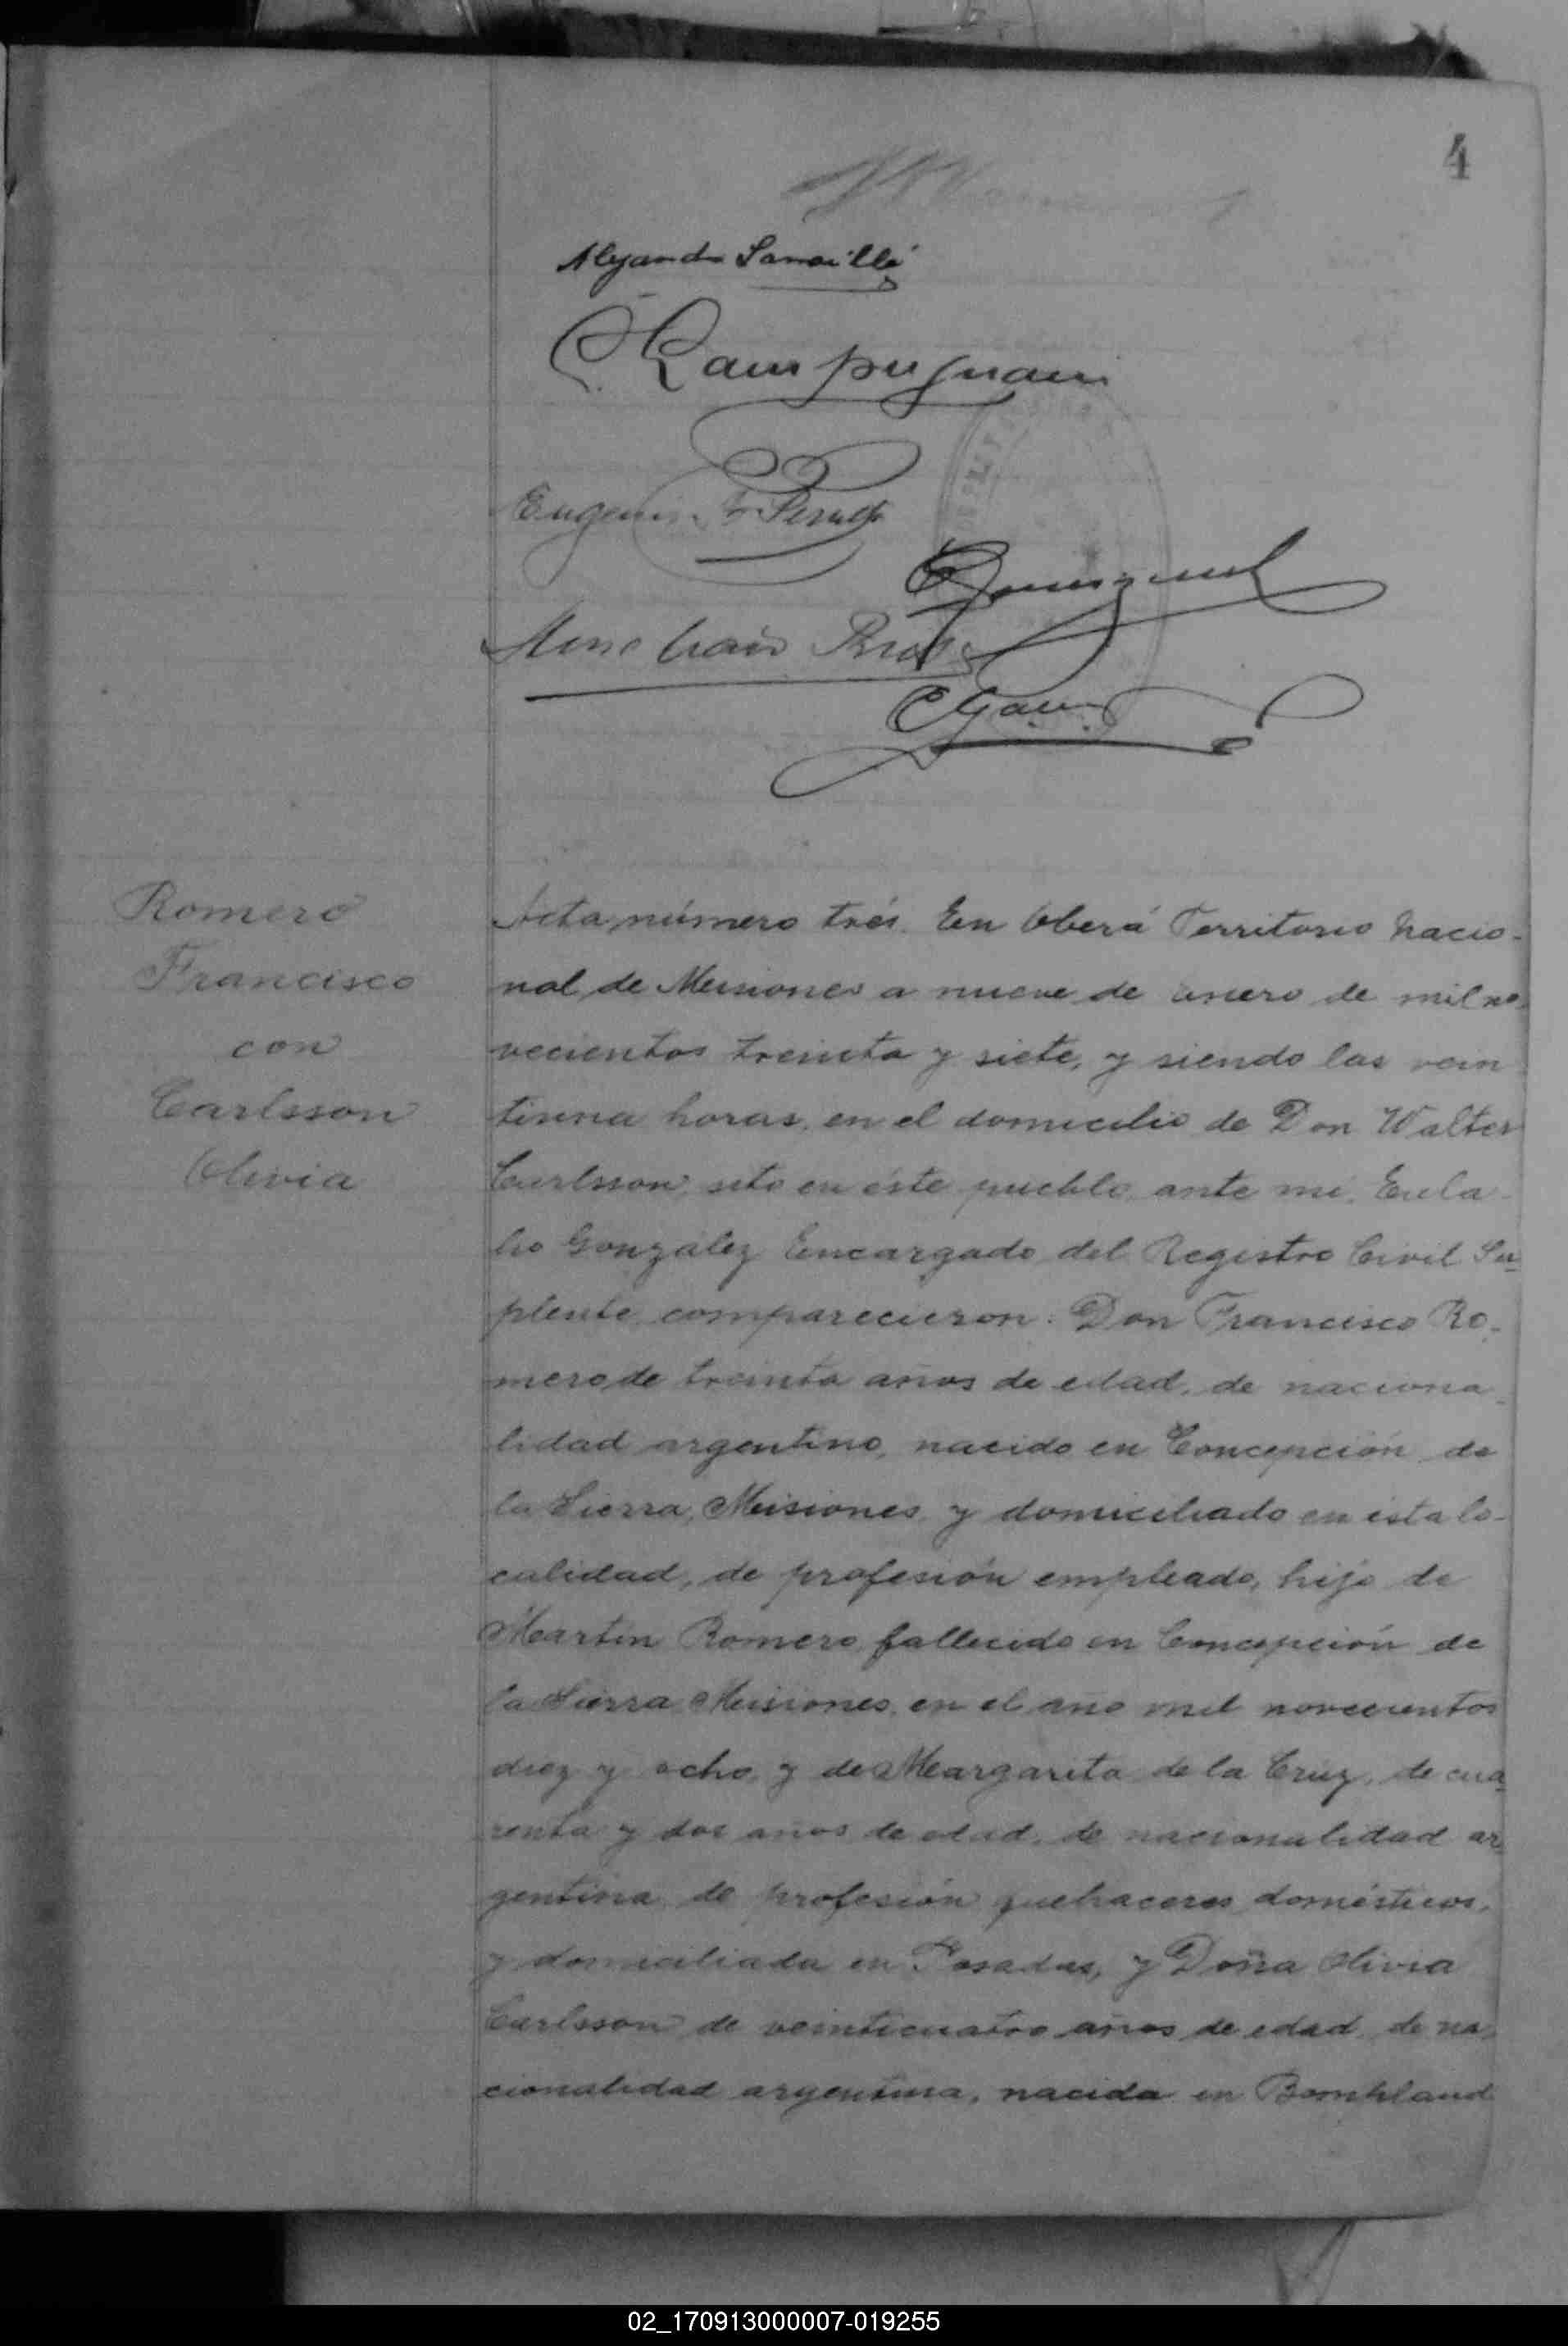 4
Alejandro
Romero
Francisco
con
Carlsson
Olivia
Acta número trés. En Oberá Territorio Nacio-
nal de Misiones a nueve de enero de mil no-
vecientos treinta y siete, y siendo las vein
tiuna horas, en el domicilio de Don Walter
Carlsson, sito en éste pueblo, ante mi, Eula-
lio González Encargado del Registro Civil Su-
plente, comparecieron: Don Francisco Ro-
mero de treinta años de edad, de naciona-
lidad argentino, nacido en Concepción de
la Sierra, Misiones y domiciliado en ésta lo-
calidad, de profesión empleado, hijo de
Martín Romero fallecido en Concepción de
la Sierra Misiones, en el año mil novecientos
diez y ocho, y de Margarita de la Cruz, de cua-
renta y dos años de edad, de nacionalidad ar-
gentina, de profesión quehaceres domésticos,
y domiciliada en Posadas, y Doña Olivia
Carlsson de veinticuatro años de edad, de na-
cionalidad argentina, nacida en Bomhland
02_170913000007-019255